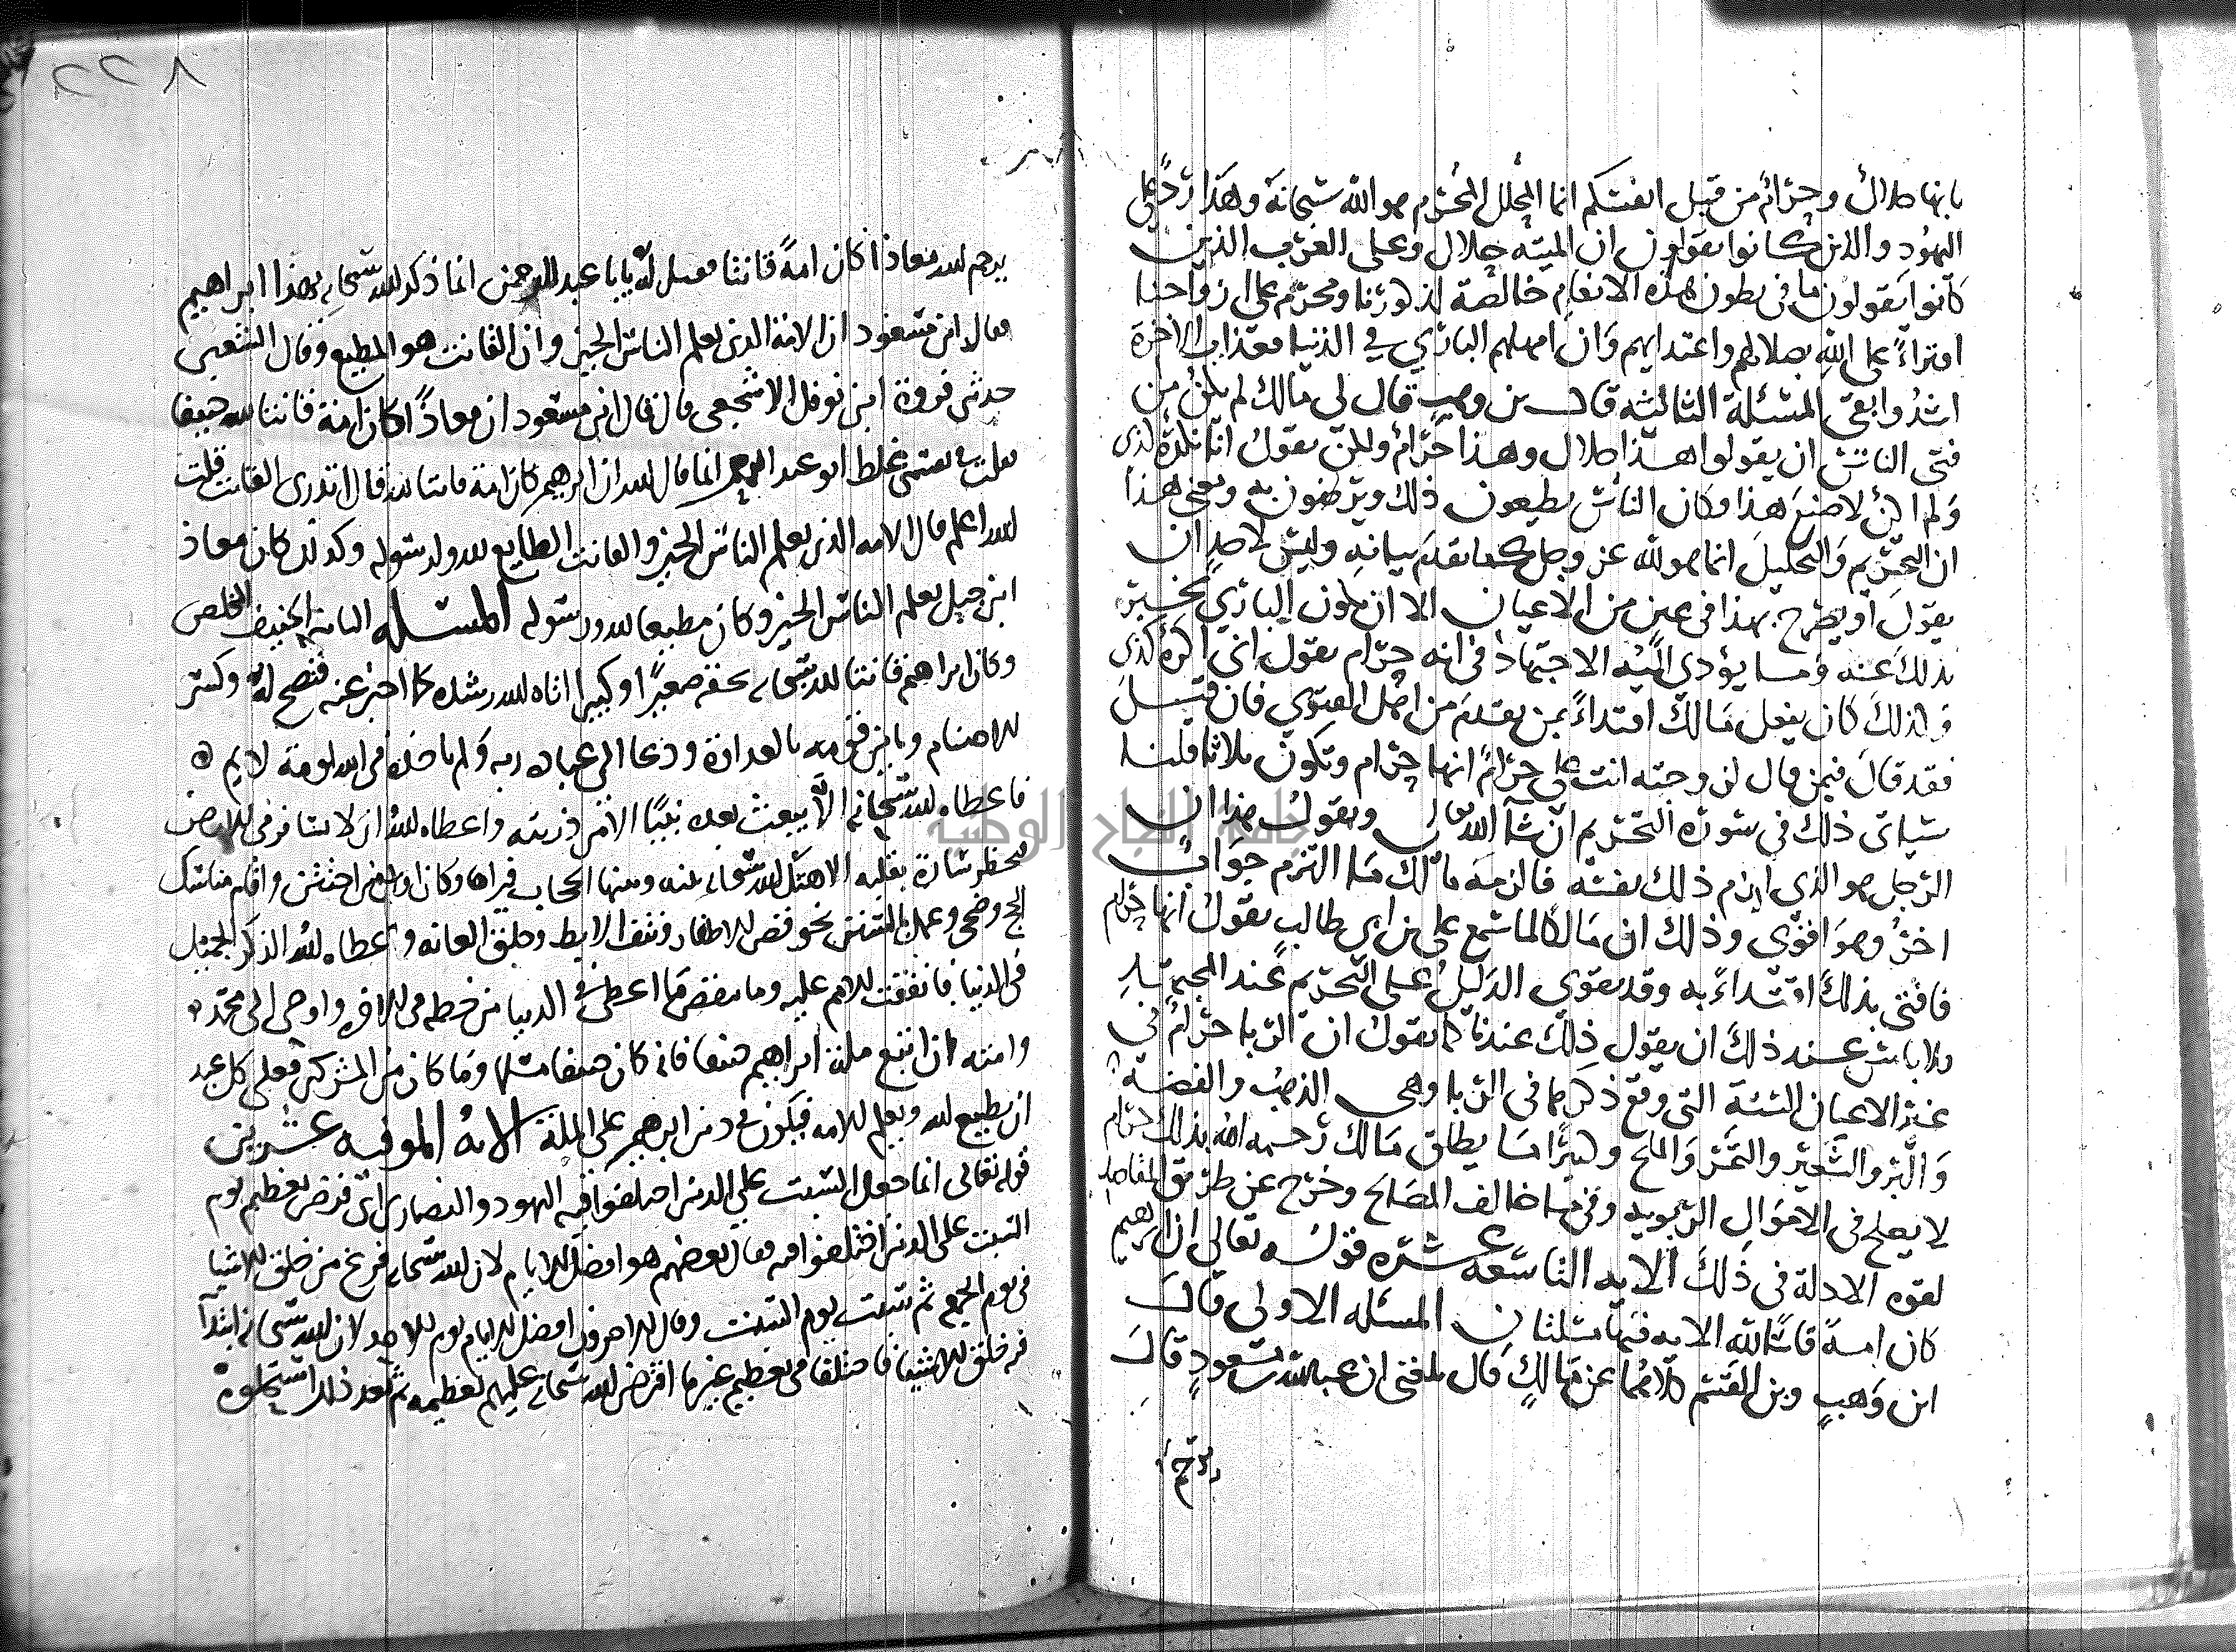 بانها حلال وحرام من قبل انفسكم انما المحلل المحرم هو الله سبحانه وهذا رد على
اليهود والذين كانوا يقولون ان الميته حلال وعلى العرب الذين
كانوا يقولون ما في بطون هذه الانعام خالصة لذكورنا ومحرم على ازواجنا
افتراءً على الله بضلالهم واعتدائهم وان امهلهم الباري في الدنيا فعذاب الاخرة
اشد وابقى المسئلة الثالثه قال بن وهب قال لي مالك لم يكن من
فتى الناس ان يقولوا هذا حلال وهذا حرام ولكن يقول انا نكره كذى
ولم اكن لاصنع هذا وكان الناس يطيعون ذلك ويرضون به ومعنى هذا
ان التحريم والتحليل انما هو لله عز وجل كما تقدم بيانه وليس لاحد ان
يقول او يصرح بهذا في عين من الاعيان الا ان يكون الباري يخبر
بذلك عنه وما يؤدي اليه الاجتهاد في انه حرام يقول اني اكره كذى
وكذلك كان يفعل مالك اقتداءً بمن تقدم من اهل الفتوي فان قيل
فقد قال فيمن قال لزوجته انت على حرام انها حرام وتكون ثلاثا قلنا
سياتى ذلك في سورة التحريم ان شآ الله ونقول هذا ان
الرجل هو الذي الزم ذلك نفسه فالزمه مالك ما التزم جواب
اخر وهو اقوى وذلك ان مالكا لما سمع على بن ابي طالب يقول انها حرام
فافتى بذلك اقتداءً به وقد يقوي الدليل على التحريم عند المجتهد
فلا باس عند ذلك ان يقول ذلك عندنا كما يقول ان الربا حرام في
غير الاعيان الستة التي وقع ذكرها في الربا وهي الذهب والفضة
والبر والشعير والتمر والملح وكثيرًا ما يطلق مالك رحمه الله بذلك حرام
لا يصلح في الاموال الربويه وفيما خالف المصالح وخرج عن طريق المقاصد
لقوه الادلة في ذلك الايه التاسعه عشره قوله تعالى ان ابرهيم
كان امة قانتا لله الايه فيها مسئلتان المسئله الاولى قال
ابن وهب وبن القسم كلاهما عن مالك قال بلغني ان عبد الله بن مسعود قال
يرحم
يرحم الله معاذا كان امة قانتا فقيل له يابا عبد الرحمن انما ذكر الله سبحانه بهذا ابراهيم
فقال ابن مسعود ان الامة الذي يعلم الناس الخير وان القانت هو المطيع وقال الشعبى
حدثنى فروة ابن نوفل الاشجعى قال قال ابن مسعود ان معاذًا كان امة قانتا لله حنيفا
فقلت في نفسى غلط ابو عبد الرحمن انما قال الله ان ابرهيم كان امة قانتا لله فقال اتدرى القانت قلت
الله اعلم قال الامه الذى يعلم الناس الخير والقانت الطايع لله ولرسوله وكذلك كان معاذ
ابن جبل يعلم الناس الخير وكان مطيعا لله ورسوله المسئله الثانيه الحنيف المخلص
وكان ابراهيم قانتا لله سبحانه بحقه صغيرًا وكبيرا اتاه الله رشده كما اخبر عنه فنصح له وكسر
الاصنام وباين قومه بالعداوة ودعا الى عباده ربه ولم ياخذه في الله لومة لايم
فاعطاه الله سبحانه الا يبعث بعده نبيًا الا من ذريته واعطاه الله ان لا يسافر في الارض
فتخطر سارة بقلبه الا هتك الله سبحانه بينه وبينها الحجاب فيراها وكان اول من اختتن واقام مناسك
الحج وضحى وعمل بالسنن نحو قص الاظفار ونتف الابط وحلق العانه واعطاه الله الذكر الجميل
في الدنيا فاتفقت الامم عليه وما نقص ما اعطى في الدنيا من حظه في الاخره واوحى الى محمد
وامته ان اتبع ملة ابراهيم حنيفا فانه كان حنيفا مسلما وما كان من المشركين فعلى كل عبد
ان يطيع الله ويعلم الامه فيكون في دين ابرهيم على الملة الايه الموفيه عشرين
قوله تعالى انما جعل السبت على الذين اختلفوا فيه اليهود والنصارى اى فرض تعظيم يوم
السبت على الذين اختلفوا فيه فقال بعضهم هو افضل الايام لان الله سبحانه فرغ من خلق الاشيا
في يوم الجمعه ثم سبت يوم السبت وقال الاخرون افضل الايام يوم الاحد لان الله سبحانه ابتدا
فيه خلق الاشيا فاختلفا في تعظيم غير ما افترض الله سبحانه عليهم تعظيمه ثم بعد ذلك استحلوه
جامعة النجاح الوطنية